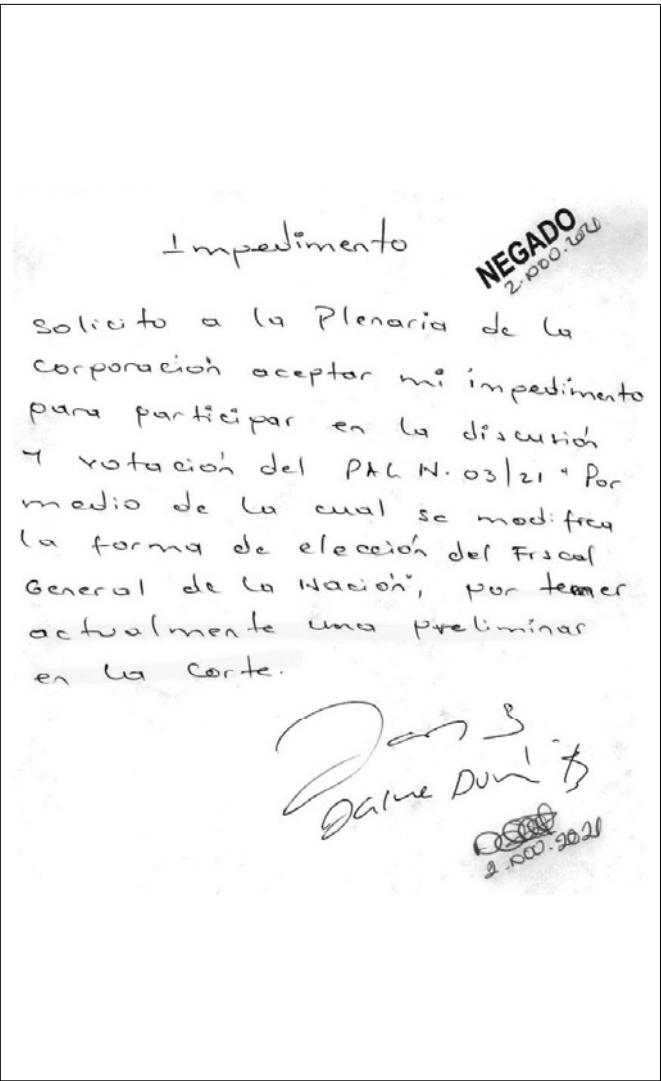 Impedimento
NEGADO
2. nov. 2021
Solicito a la Plenaria de la
corporación aceptar mi impedimento
para participar en la discusión
y votación del PAL N. 03/21 "Por
medio de la cual se modifica
la forma de elección del Fiscal
General de la Nación", por tener
actualmente una preliminar
en la Corte.
2. nov. 2021